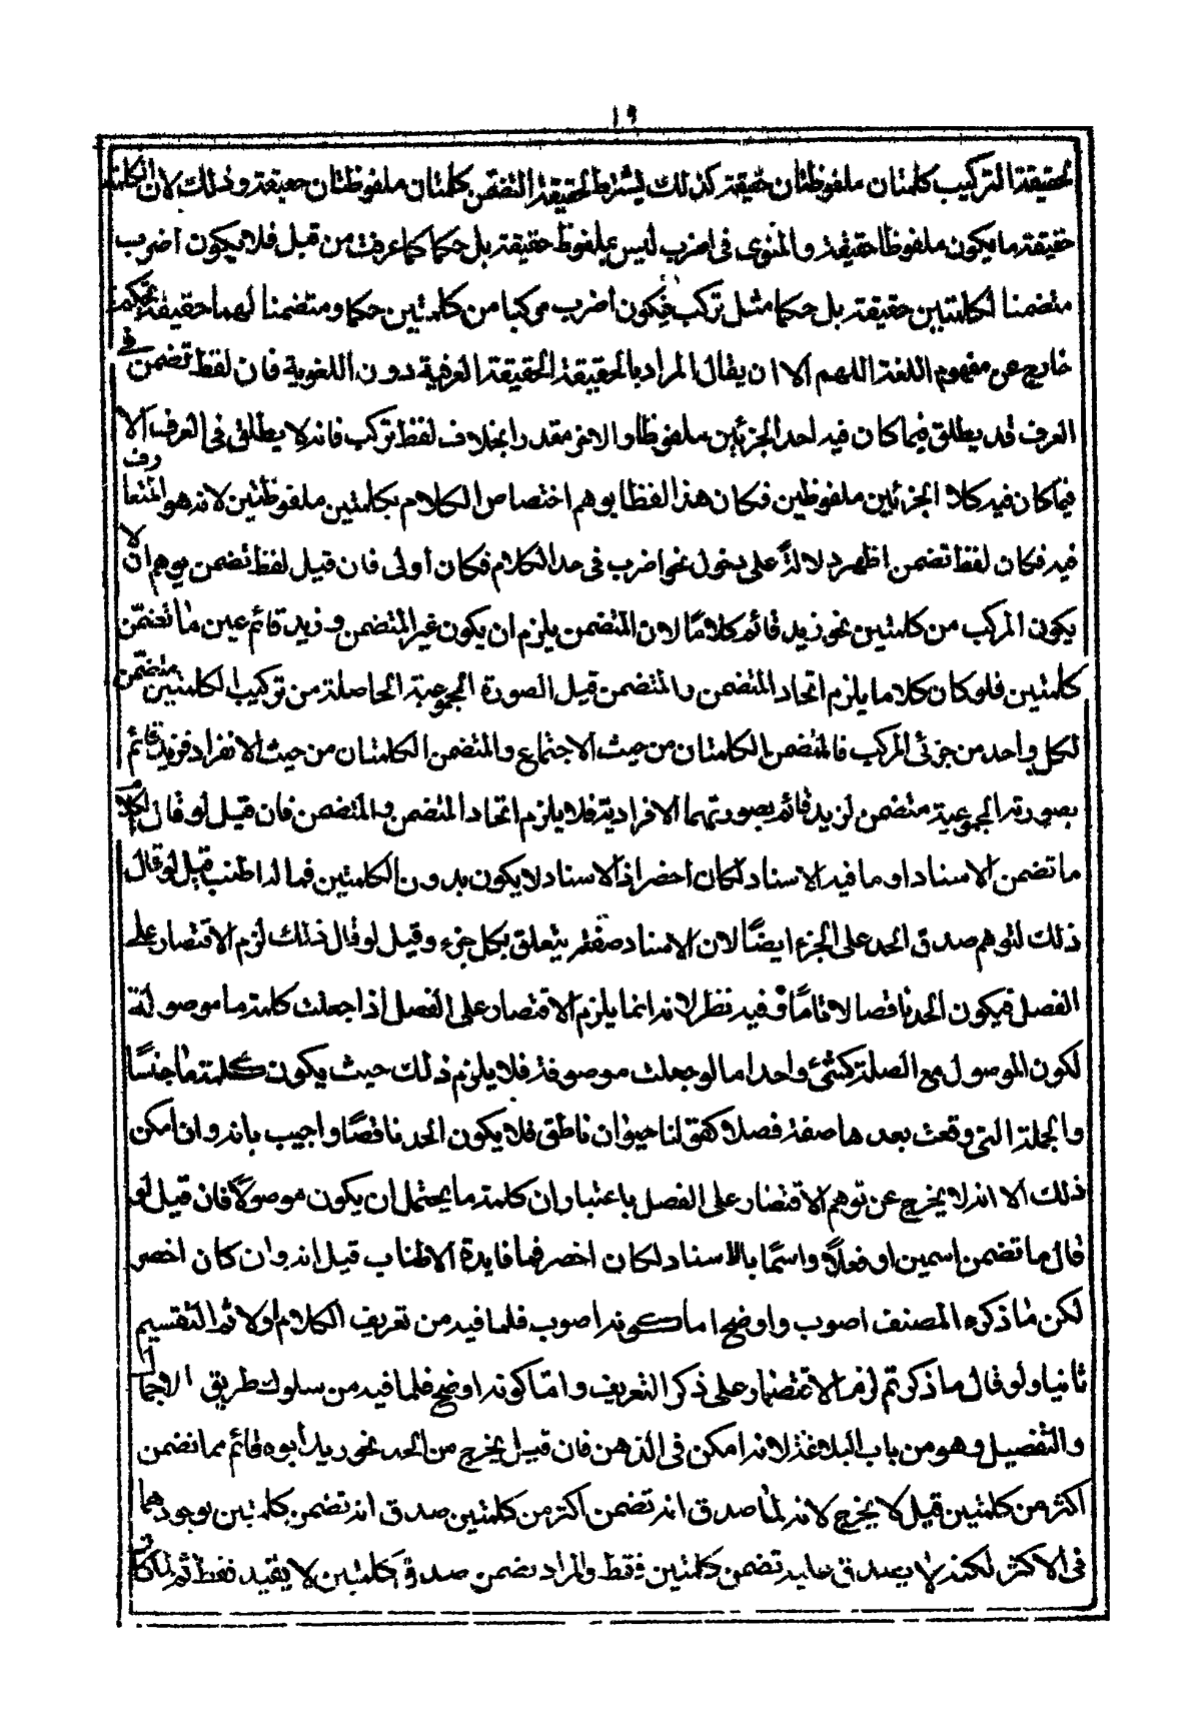 ١٩
لحقيقة التركيب كلمتان ملفوظتان حقيقة كذلك يشترط لحقيقة التضمن كلمتان ملفوظتان حقيقة وذلك لان الكلمة
حقيقة ما يكون ملفوظا حقيقة والمنوى فى اضرب ليس بملفوظ حقيقة بل حكما كما عرفت من قبل فلا يكون اضرب
متضمنا لكلمتين حقيقة بل حكما مثل تركب فيكون اضرب مركبا من كلمتين حكما ومتضمنا لهما حقيقة تحكم
خارج عن مفهوم اللغة اللهم الا ان يقال المراد بالحقيقة الحقيقة العرفية دون اللغوية فان لفظ تضمن فى
العرف قد يطلق فيما كان فيه احد الجزئين ملفوظا والاخر مقدرا بخلاف لفظ تركب فانه لا يطلق فى العرف الا
فيما كان فيه كلا الجزئين ملفوظين فكان هذا لفظا يوهم اختصاص الكلام بكلمتين ملفوظتين لانه هو المتعارف
فيه فكان لفظ تضمن اظهر دلالة على دخول نحو اضرب فى حد الكلام فكان أولى فان قيل لفظ تضمن يوهم ان لا
يكون المركب من كلمتين نحو زيد قائم كلامًا لان المتضمن يلزم ان يكون غير المتضمن وزيد قائم عين ما تضمّن
كلمتين فلو كان كلاما يلزم اتحاد المتضمن والمتضمن قيل الصورة المجموعية الحاصلة من تركيب الكلمتين متضمن
لكل واحد من جزئى المركب فالمتضمن الكلمتان من حيث الاجتماع والمتضمن الكلمتان من حيث الانفراد فزيد قائم
بصورته المجموعية متضمن لزيد قائم بصورتهما الافرادية فلا يلزم اتحاد المتضمن والمتضمن فان قيل لو قال الكلام
ما تضمن الاسناد او ما فيه الاسناد لكان اخضر اذ الاسناد لا يكون بدون الكلمتين فما لذا اطنب قيل لو قال
ذلك لتوهم صدق الحد على الجزء ايضًا لان الاسناد صفة يتعلق بكل جزء وقيل لو قال ذلك لزم الاقتصار على
الفصل فيكون الحد ناقصا لا تامًا وفيه نظر لانه انما يلزم الاقتصار على الفصل اذا جعلت كلمة ما موصولة
لكون الموصول مع الصلة كشئ واحد اما لو جعلت موصوفة فلا يلزم ذلك حيث يكون كلمة ما جنسًا
والجملة التى وقعت بعدها صفة فصلا كقولنا حيوان ناطق فلا يكون الحد ناقصًا واجيب بانه وان امكن
ذلك الا انه لا يخرج عن توهم الاقتضار على الفصل باعتبار ان كلمة ما يحتمل ان يكون موصولًا فان قيل لو
قال ما تضمن اسمين او فعلًا واسمًا بالاسناد لكان اخصر فما فايدة الاطناب قيل انه وان كان اخصر
لكن ما ذكره المصنف اصوب واوضح اما كونه اصوب فلما فيه من تعريف الكلام اولا ثم التقسيم
ثانيا ولو قال ما ذكرتم لزم الاقتضار على ذكر التعريف واما كونه اوضح فلما فيه من سلوك طريق الاجمال
والتفصيل وهو من باب البلاغة لانه امكن فى الذهن فان قيل يخرج من الحد نحو زيد أبوه قائم مما تضمن
اكثر من كلمتين قيل لا يخرج لانه لما صدق انه تضمن اكثر من كلمتين صدق انه تضمن كلمتين بوجودهما
فى الاكثر لكنه لا يصدق عليه تضمن كلمتين فقط والمراد تضمن كلمتين لا بقيد فقط ثم